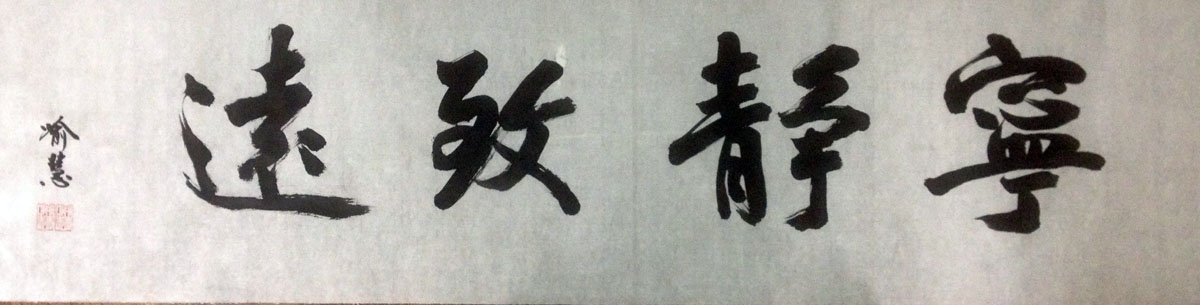 寧靜致遠
喻慧